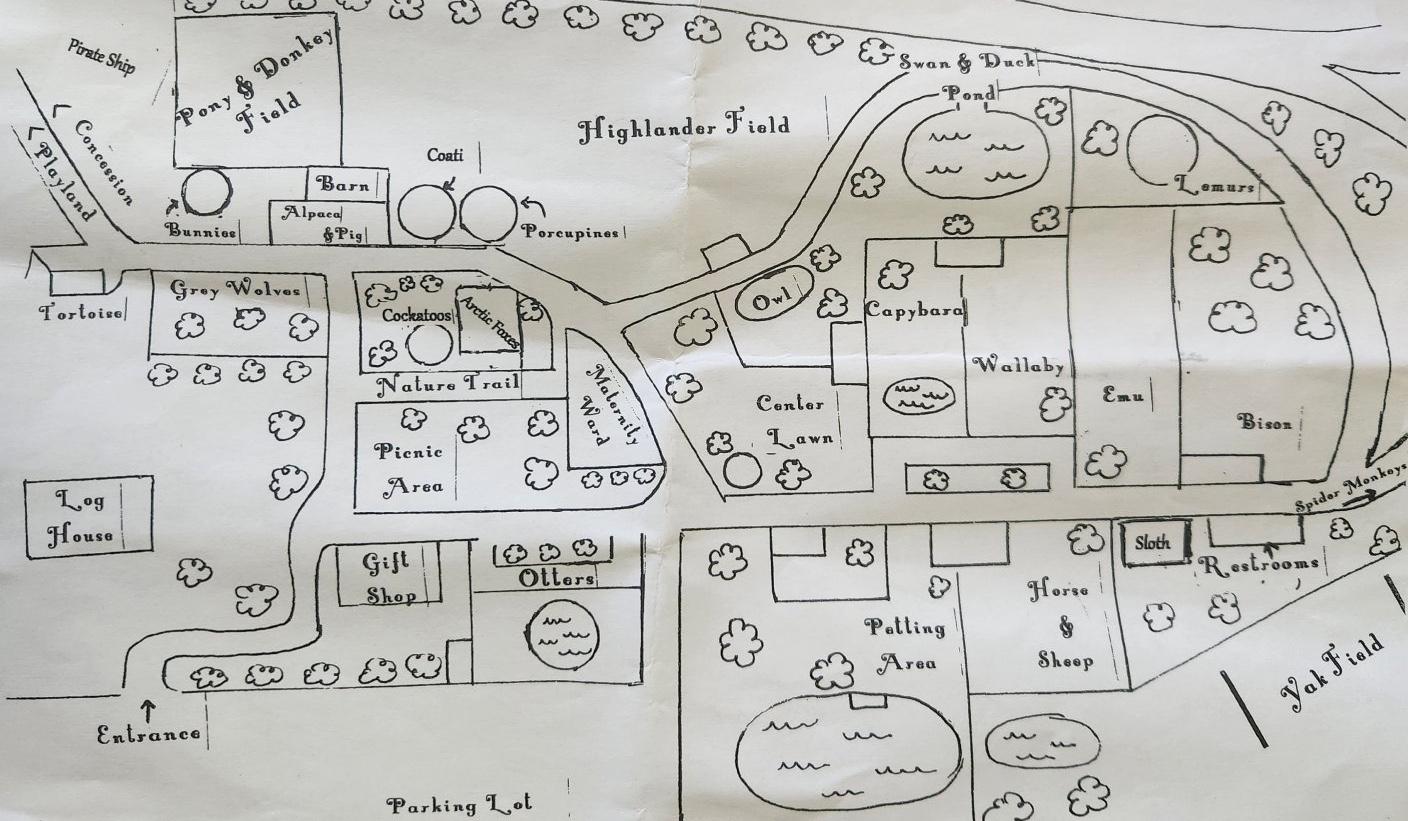 Pirate Ship
Pony & Donkey
Field
Concession
Playland
Swan & Duck
Pond
Highlander Field
Coati
Barn
Alpaca
& Pig
Bunnies
Porcupines
Lemurs
Tortoise
Grey Wolves
Cockatoos
Arctic Foxes
Nature Trail
Maternity
Ward
Owl
Capybara
Wallaby
Emu
Bison
Center
Lawn
Picnic
Area
Log
House
Spider Monkeys
Gift
Shop
Otters
Sloth
Restrooms
Horse
&
Sheep
Petting
Area
Yak Field
Entrance
Parking Lot